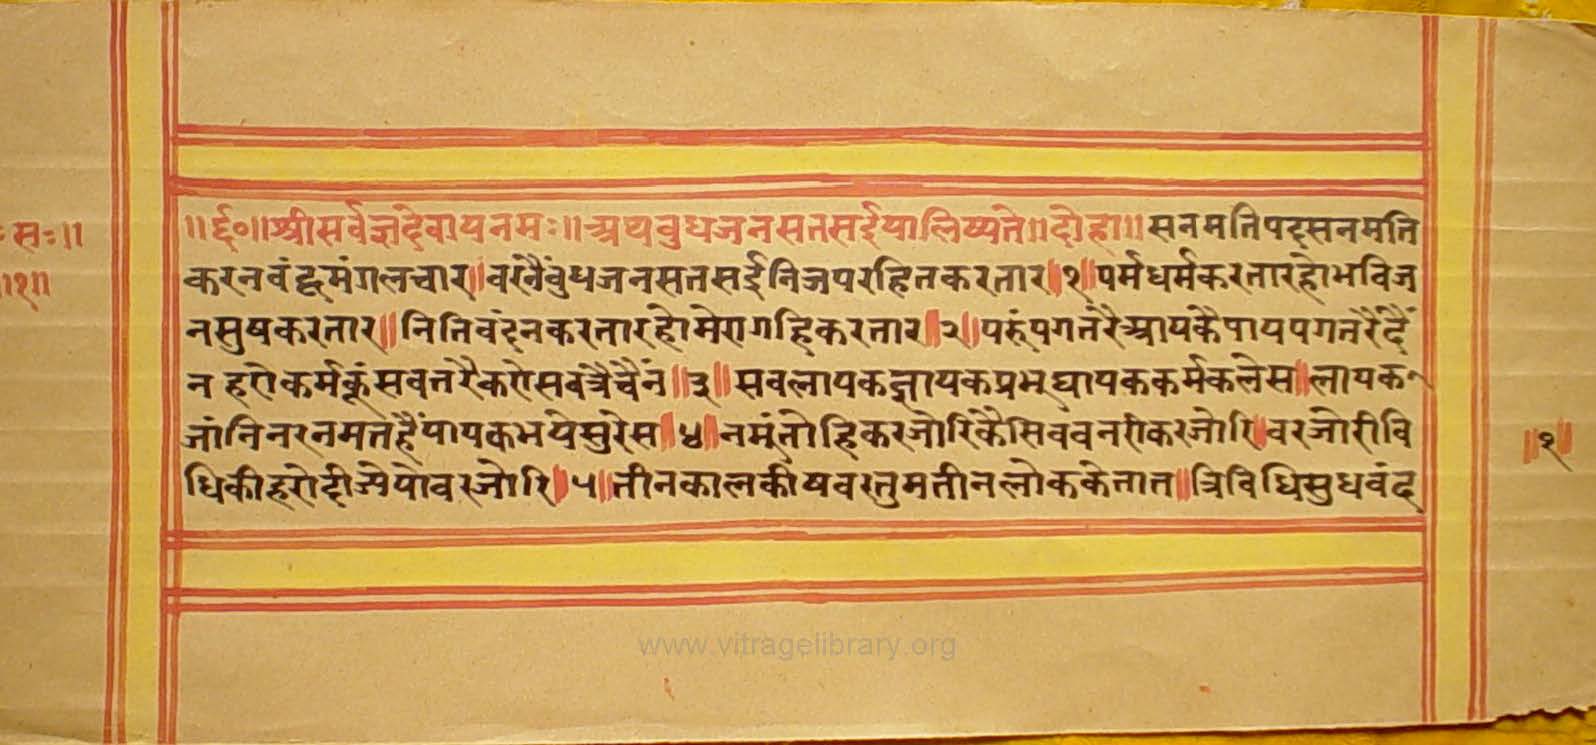 ॥ र्द्द० ॥ श्रीसर्वज्ञदेवायनमः ॥ अथबुधजनसतसईयालिष्यते ॥ दोहा ॥ सनमतिपदसनमति
करनवंदूमंगलचार ॥ वरनैंबुधजनसतसईनिजपरहितकरतार ॥ १ ॥ पर्मधर्मकरतारहोभविज
नसुषकरतार ॥ नितिवंदनकरतारहोमेरागहिकरतार ॥ २ ॥ परुंपगतरैआयकैपायपगतरैदैं
न हरोकर्मकूंसबतरैकरोसबत्रैचैंनं ॥ ३ ॥ सबलायकग्यायकप्रभूघायककर्मकलेस ॥ लायक
जांनिनरनमतहैंपायकभयेसुरेस ॥ ४ ॥ नमूंतोहिकरजोरिकैसिववनरीकरजोरि ॥ वरजोरीवि
धिकीहरोदीज्येयोवरजोरि ॥ ५ ॥ तीनकालकीषवरतुमतीनलोककेतात ॥ त्रिविधिसुधवंद
॥ १ ॥
सः ॥
॥ १ ॥
www.vitragelibrary.org